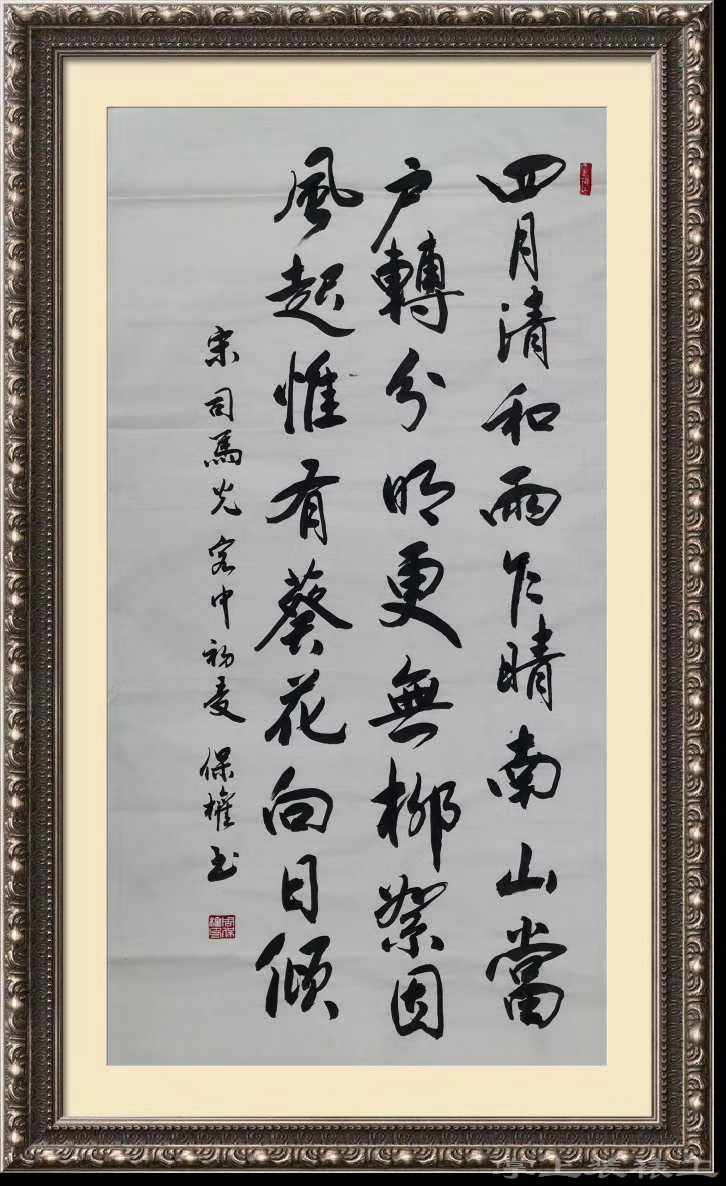 四月清和雨乍晴南山當
户轉分明更無柳絮因
風起惟有葵花向日傾
宋司馬光客中初夏 保權书
掌上装裱工